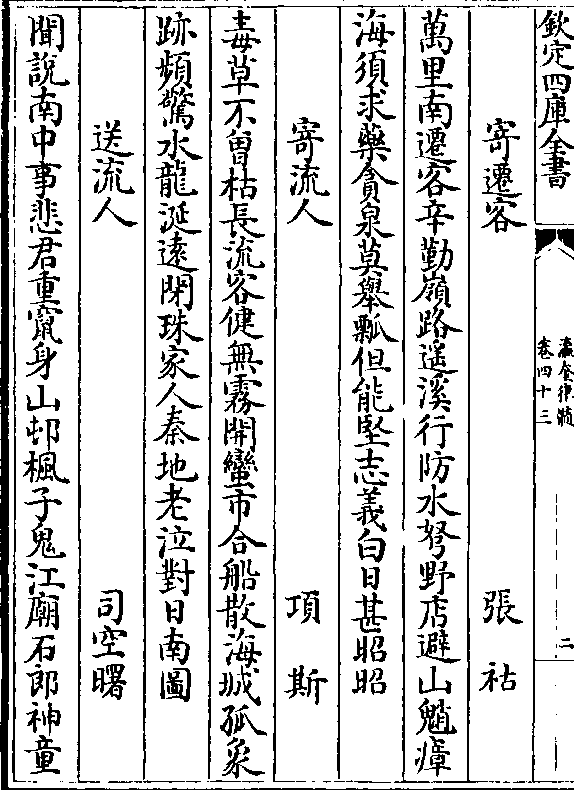 欽定四庫全書
瀛奎律髓
卷四十三
二
寄遷客 張祜
萬里南遷客辛勤嶺路遥溪行防水弩野店避山魈瘴
海須求藥貪泉莫舉瓢但能堅志義白日甚昭昭
寄流人 項斯
毒草不曽枯長流客健無霧開蠻市合船散海城孤象
跡頻驚水龍涎遠閉珠家人秦地老泣對日南圖
送流人 司空曙
聞説南中事悲君重竄身山邨楓子鬼江廟石郎神童